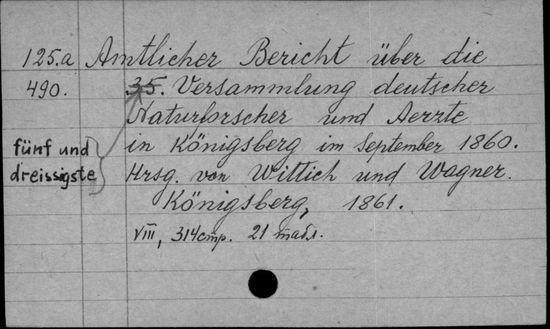 125.a Amtlicher Bericht über die
490. 35. Versammlung deutscher
Naturforscher und Aerzte
fünf und in Königsberg im September 1860.
dreissigste Hrsg. von Wittich und Wagner.
Königsberg, 1861.
VIII, 314 стр. 21 табл.